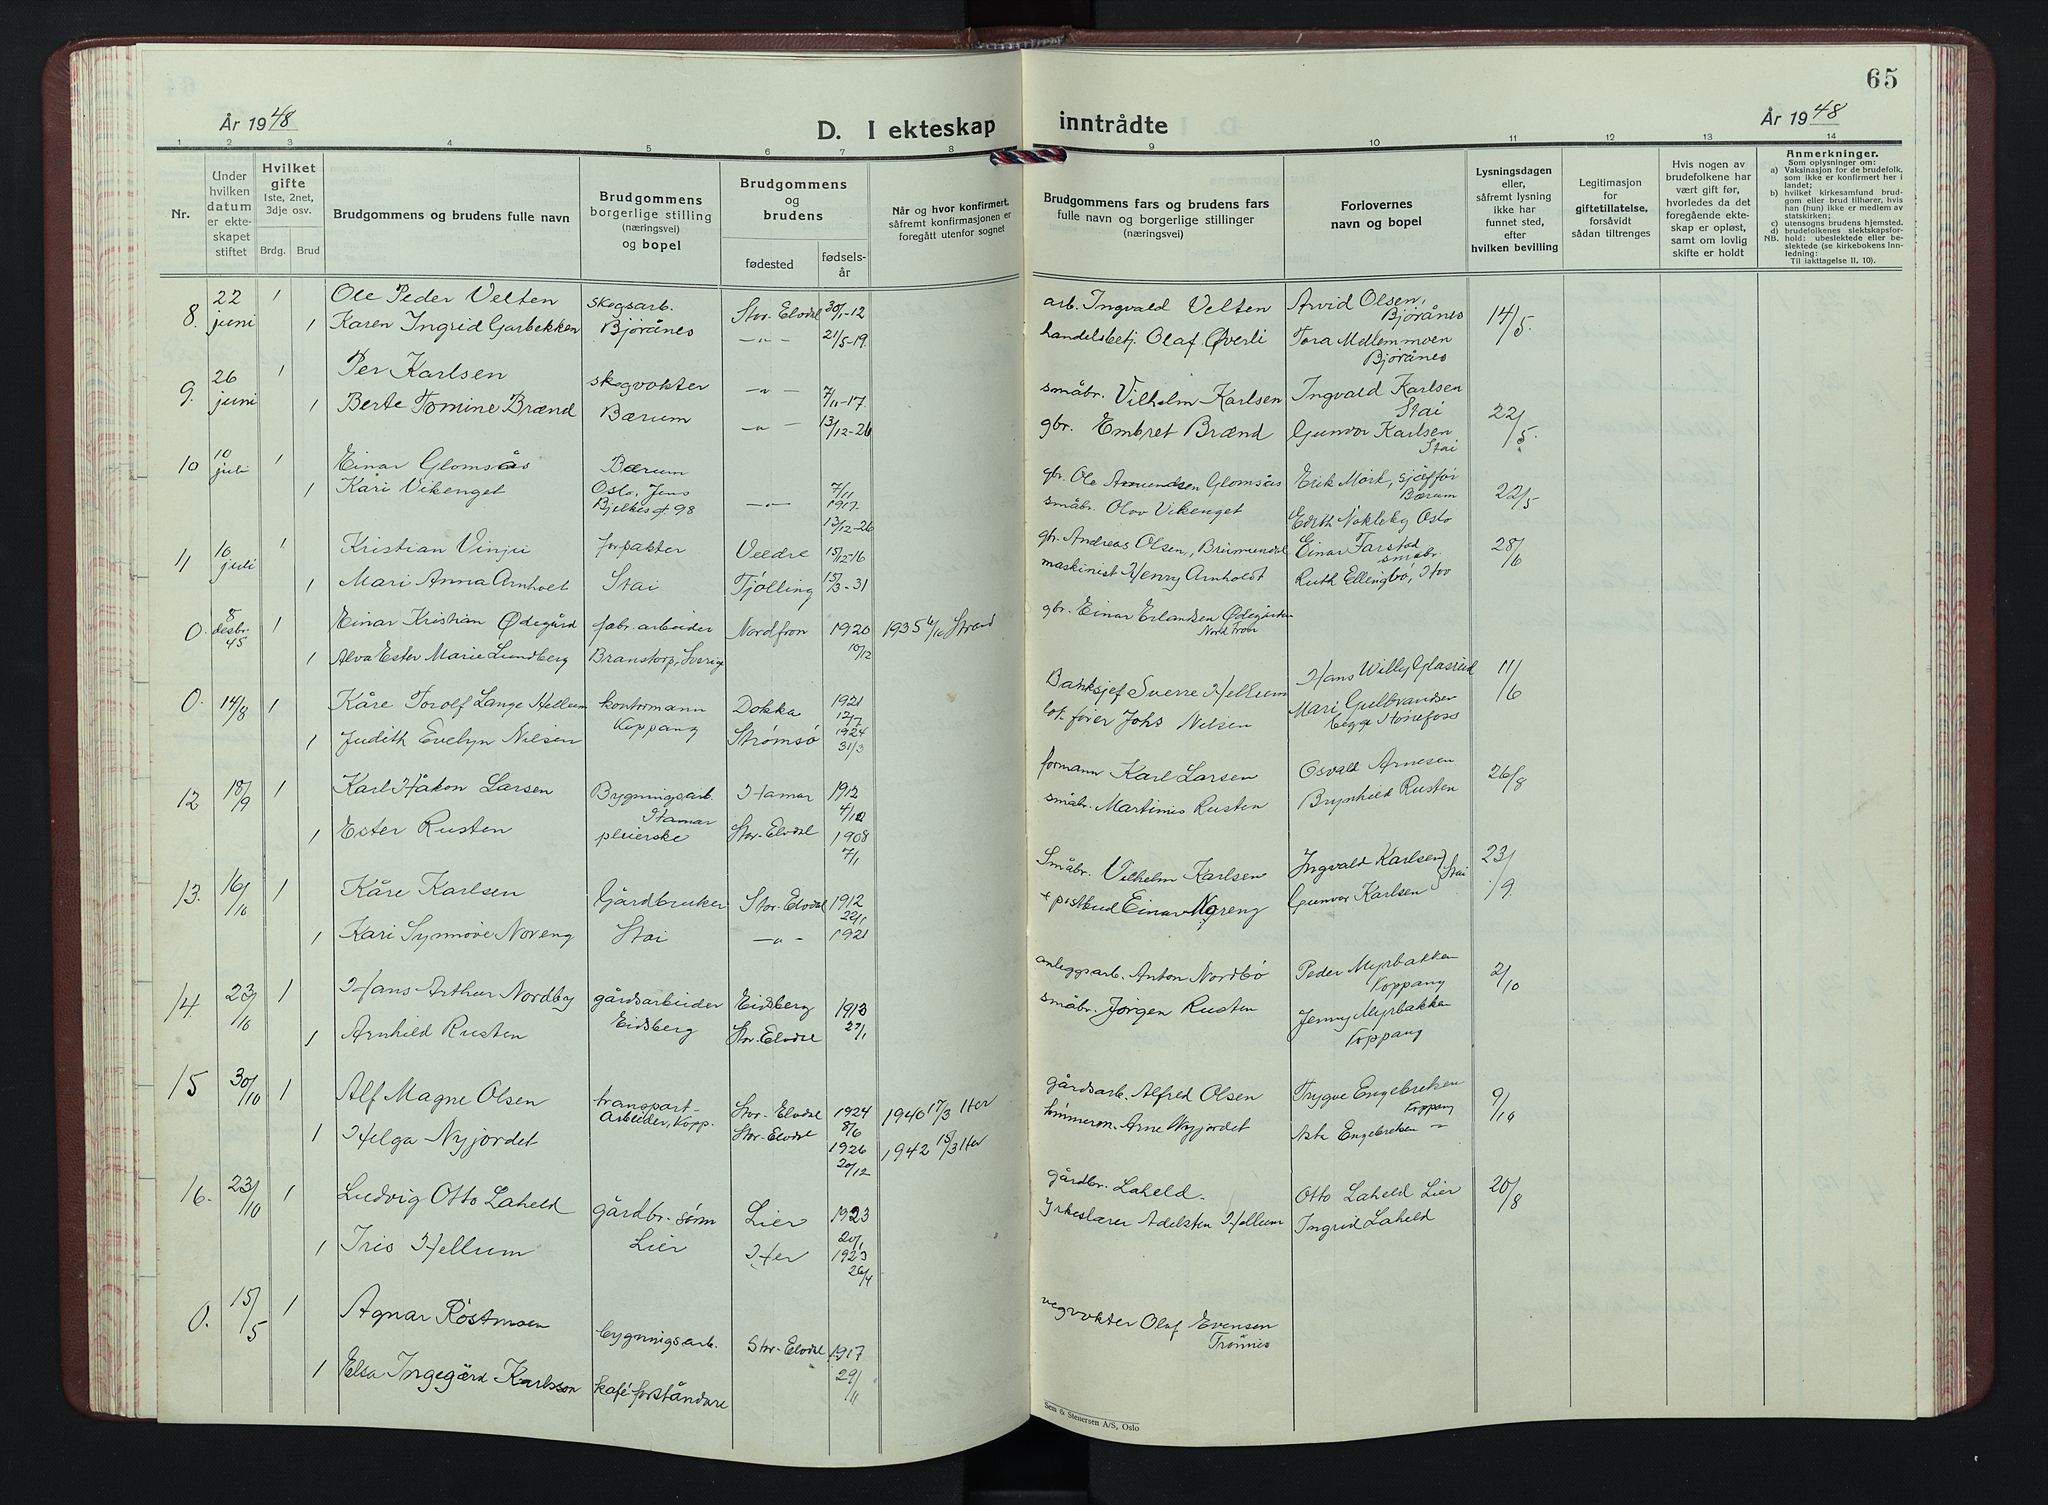 65
År 1948
D. I ekteskap inntrådte
År 1948
1 2 3 4 5 6 7 8 9 10 11 12 13 14
Nr.
Under hvilken datum er ekteskapet stiftet
Hvilket gifte
1ste, 2net, 3dje osv.
Brdg. Brud
Brudgommens og brudens fulle navn
Brudgommens borgerlige stilling (næringsvei) og bopel
Brudgommens og brudens
fødested
fødselsår
Når og hvor konfirmert, såfremt konfirmasjonen er foregått utenfor sognet
Brudgommens fars og brudens fars fulle navn og borgerlige stillinger (næringsvei)
Forlovernes navn og bopel
Lysningsdagen eller, såfremt lysning ikke har funnet sted, efter hvilken bevilling
Legitimasjon for giftetillatelse, forsåvidt sådan tiltrenges
Hvis nogen av brudefolkene har vært gift før, hvorledes da det foregående ekteskap er opløst, samt om lovlig skifte er holdt
Anmerkninger.
Som oplysninger om:
a) Vaksinasjon for de brudefolk, som ikke er konfirmert her i landet;
b) hvilket kirkesamfund brudgom eller brud tilhører, hvis han (hun) ikke er medlem av statskirken;
c) utensogns brudens hjemsted.
d) brudefolkenes slektskapsforhold: ubeslektede eller beslektede (se kirkebokens Innledning:
NB.
Til iakttagelse II. 10).
8. 22 juni 1 Ole Peder Velten skogsarb. Stor-Elvdal 30/1-12 arb. Ingvald Velten Arvid Olsen, Bjørånes 14/5.
1 Karen Ingrid Garbekken Bjørånes -"- 21/5-19. handelsbetj. Olaf Øverli Tora Mellemmoen Bjørånes
9. 26 juni 1 Per Karlsen skogvokter -"- 7/11-17. småbr. Vilhelm Karlsen Ingvald Karlsen Stai 22/5.
1 Berte Tomine Brænd Bærum -"- 13/12-26 gbr. Embret Brænd Gunvor Karlsen Stai
10 10 juli 1 Einar Glomsås Bærum 7/11 1917. gbr. Ole Amundsen Glomsås Erik Mørk, sjåffør Bærum 22/5
1 Kari Vikenget Oslo, Jens Bjelkes gt 98 -"- 13/12-26 småbr. Olov Vikenget Edith Nokleby Oslo
11 10 juli 1 Kristian Vinju forpakter Veldre 15/12-16 gbr. Andreas Olsen, Brumundal Einar Farstad småbr. 28/6
1 Mari Anna Arnholt Stai Tjølling 15/3-31 maskinist Henry Arnholdt Ruth Ellingbø, Hov
0. 8 desbr. 45 1 Einar Kristian Ødegård fabr. arbeider Nordfron 1920 10/12 1935 6/10 Strand gbr. Einar Erlandsen Ødegården Nord Fron
1 Alva Ester Marie Lundberg Branstorp, Sverige
0. 14/8 1 Kåre Torolf Lange Hellum kontormann Koppang Dokka 1921 12/7 Banksjef Sverre Hellum Hans Willy Glasrud 11/6
1 Judith Evelyn Nilsen Strømsø 1924 31/3 lok. fører Johs Nilsen Mari Gulbrandsen begge Hønefoss
12 18/9 1 Karl Håkon Larsen Bygningsarb. Hamar Hamar 1912 4/12 formann Karl Larsen Osvald Arnesen 26/8
1 Ester Rusten pleierske Stor-Elvdal 1908 7/1 småbr. Martinus Rusten Brynhild Rusten
13. 16/10 1 Kåre Karlsen Gårdbruker Stor-Elvdal 1912 22/1 Småbr. Vilhelm Karlsen Ingvald Karlsen } Stai 23/9
1 Kari Synnøve Noreng Stai -"- 1921 + postbud Einar Noreng Gunvor Karlsen
14. 23/10 1 Hans Arthur Nordby gårdsarbeider Eidsberg 1913 anleggsarb. Anton Nordbø Peder Myrbakken Koppang 2/10
1 Arnhild Rusten Eidsberg Stor-Elvdal 27/1 småbr. Jörgen Rusten Jenny Myrbakken Koppang
15 30/10 1 Alf Magne Olsen transport-arbeider, Kopp. Stor-Elvdal 1924 8/6 1940 17/3 Her gårdsarb. Alfred Olsen Trygve Engebretsen Koppang 9/10
1 Helga Nyjordet Stor-Elvdal 1926 20/12 1942 15/3 Her tømmerm. Arne Nyjordet Asta Engebretsen -
16. 23/10 1 Ludvig Otto Laheld gårdbr. sønn Lier 1923 20/1 gårdbr. Laheld. Otto Laheld Lier 20/8
1 Iris Hellum Lier Her 1923 26/4 Yrkeslærer Adelsten Hellum Ingrid Laheld
0. 15/5 1 Agnar Røstmoen bygningsarb. Stor-Elvdal 1917 29/11 vegvokter Olaf Evensen Trønnes
1 Elsa Ingegärd Karlsson kaféforståndare
Sem & Stenersen A/S, Oslo